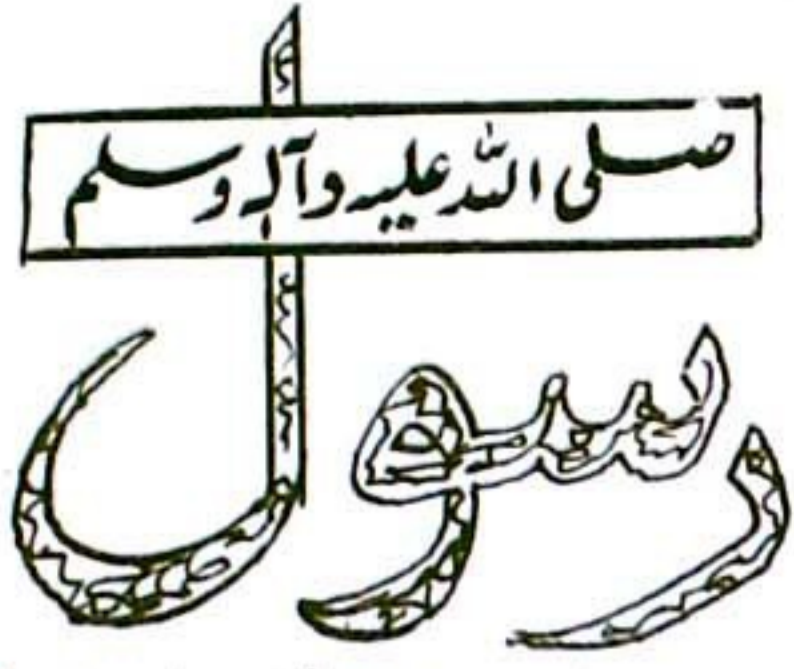 صلی اللہ علیہ وآلہ وسلم
رسول